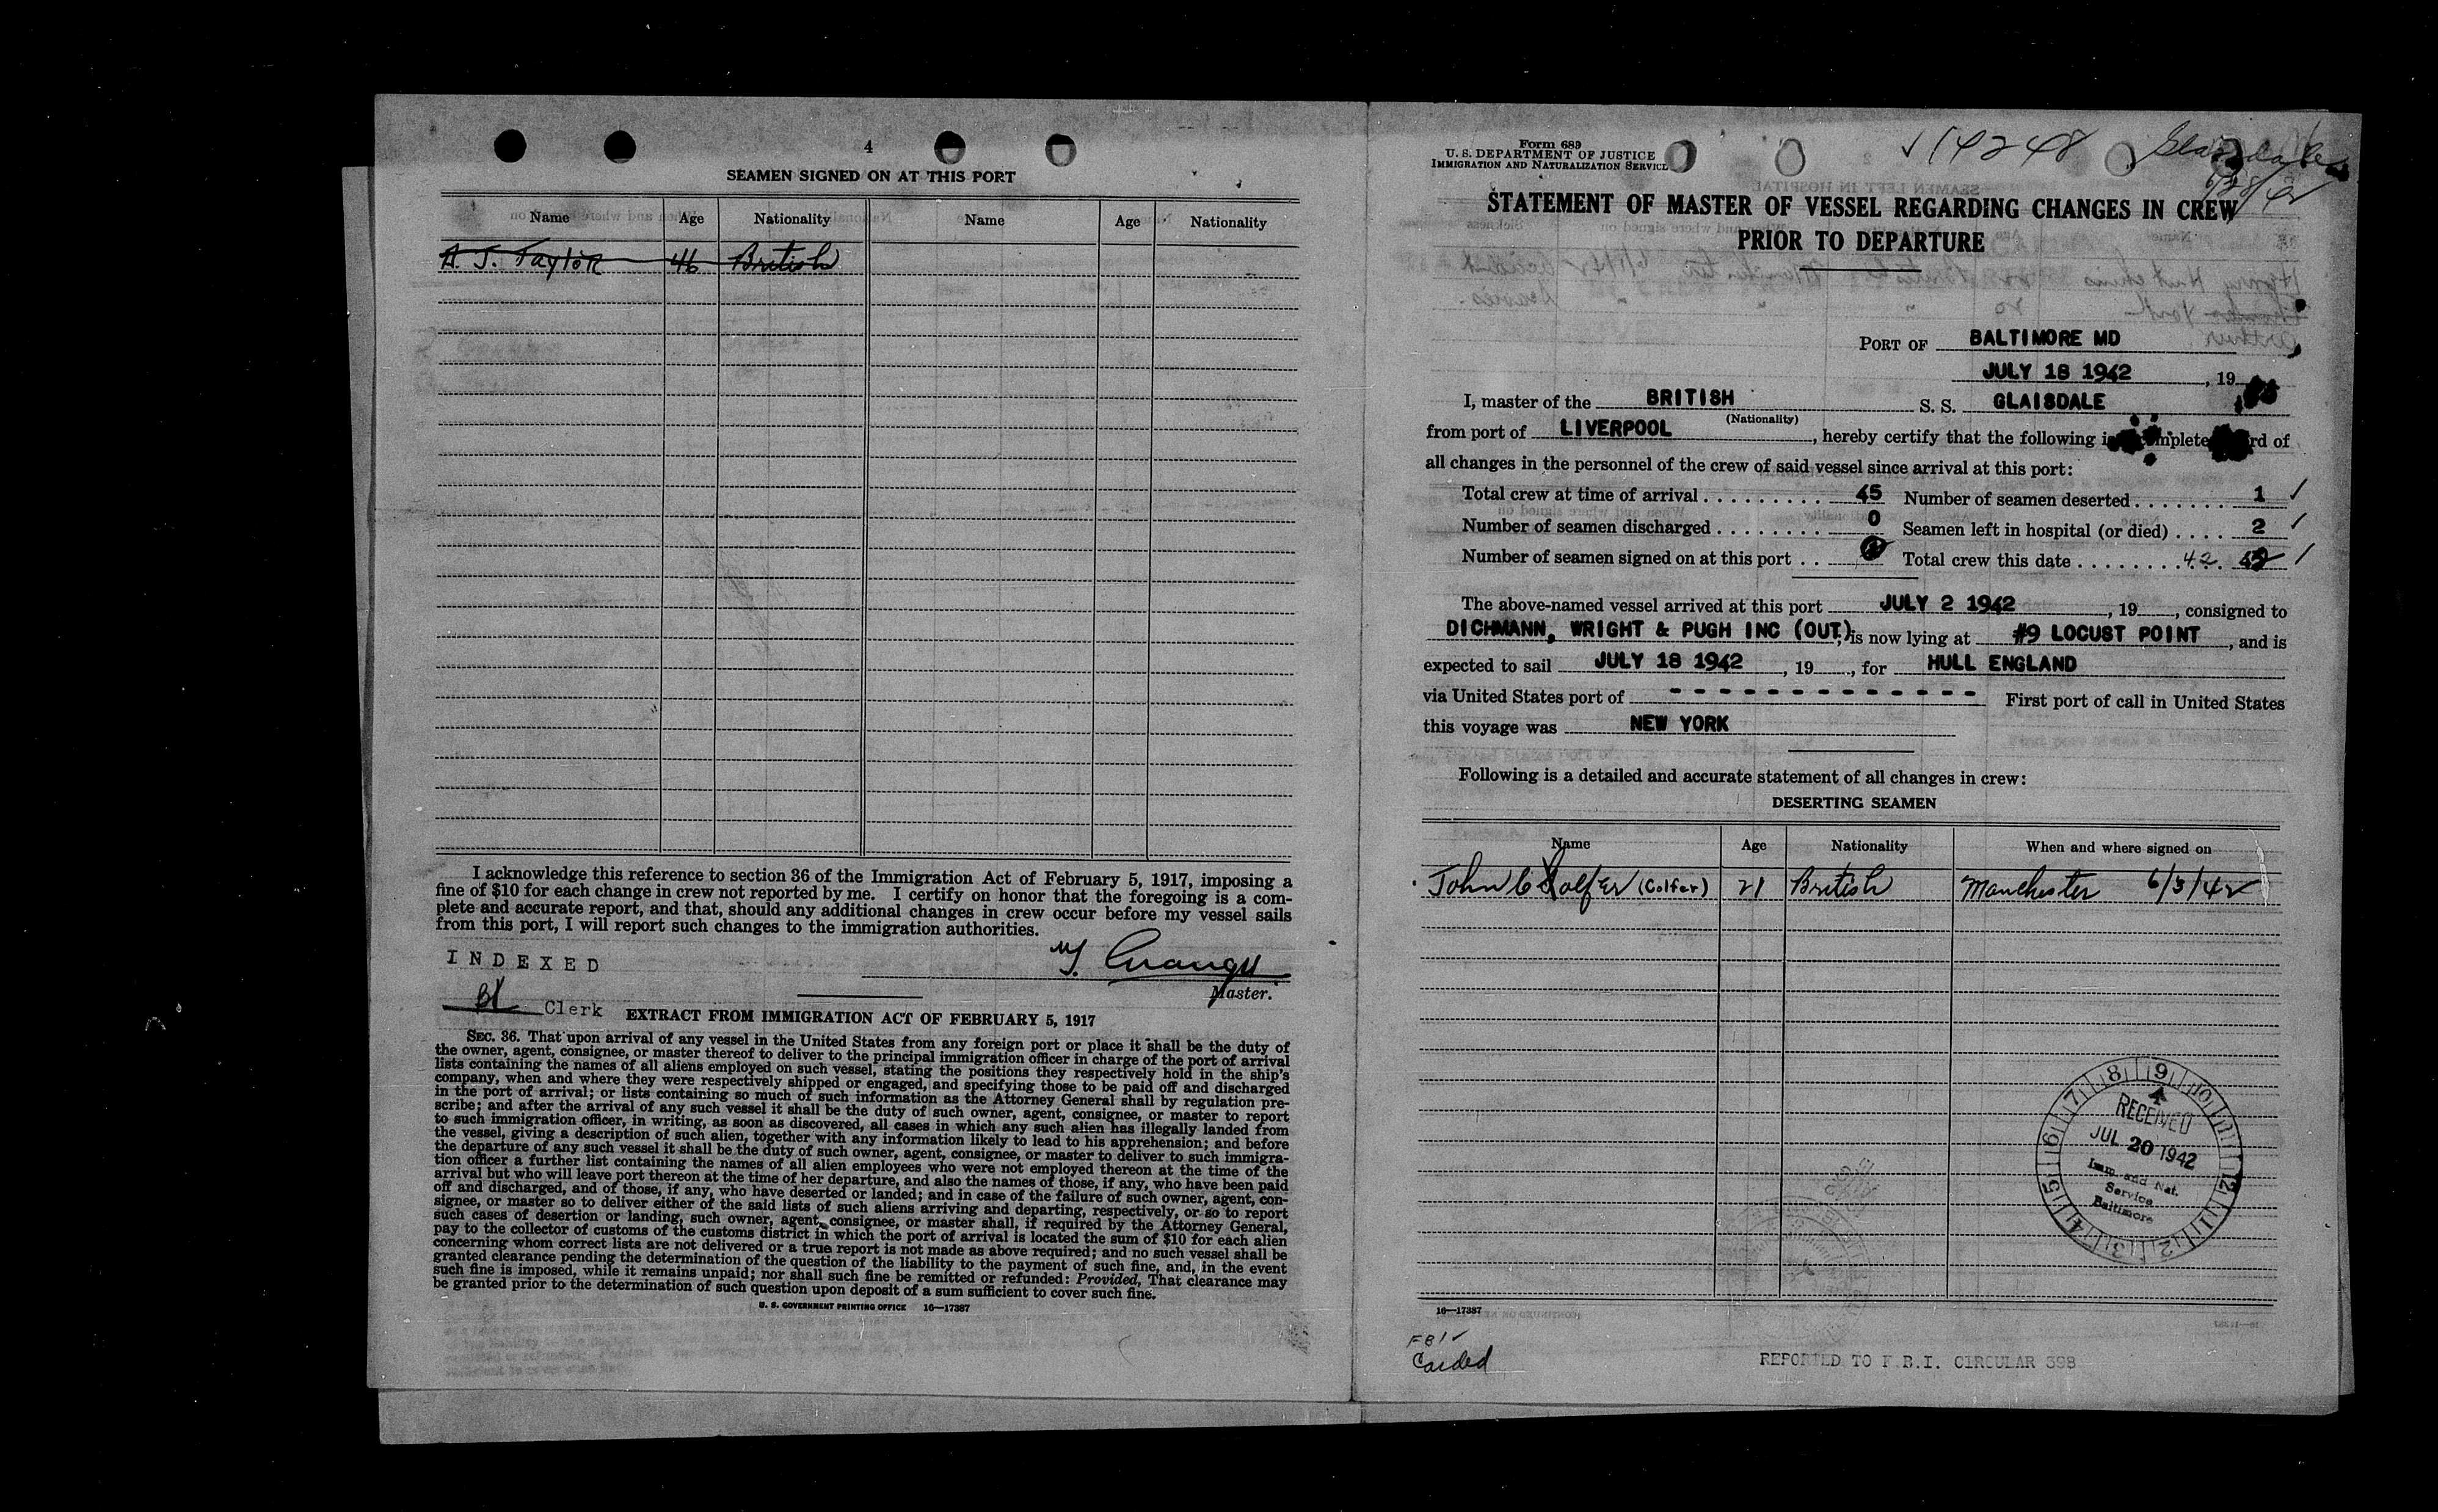 4
SEAMEN SIGNED ON AT THIS PORT
Name Age Nationality Name Age Nationality
A. J. Taylor 46 British
I acknowledge this reference to section 36 of the Immigration Act of February 5, 1917, imposing a
fine of $10 for each change in crew not reported by me. I certify on honor that the foregoing is a com-
plete and accurate report, and that, should any additional changes in crew occur before my vessel sails
from this port, I will report such changes to the immigration authorities.
INDEXED
Master.
Clerk
EXTRACT FROM IMMIGRATION ACT OF FEBRUARY 5, 1917
SEC. 36. That upon arrival of any vessel in the United States from any foreign port or place it shall be the duty of
the owner, agent, consignee, or master thereof to deliver to the principal immigration officer in charge of the port of arrival
lists containing the names of all aliens employed on such vessel, stating the positions they respectively hold in the ship's
company, when and where they were respectively shipped or engaged, and specifying those to be paid off and discharged
in the port of arrival; or lists containing so much of such information as the Attorney General shall by regulation pre-
scribe; and after the arrival of any such vessel it shall be the duty of such owner, agent, consignee, or master to report
to such immigration officer, in writing, as soon as discovered, all cases in which any such alien has illegally landed from
the vessel, giving a description of such alien, together with any information likely to lead to his apprehension; and before
the departure of any such vessel it shall be the duty of such owner, agent, consignee, or master to deliver to such immigra-
tion officer a further list containing the names of all alien employees who were not employed thereon at the time of the
arrival but who will leave port thereon at the time of her departure, and also the names of those, if any, who have been paid
off and discharged, and of those, if any, who have deserted or landed; and in case of the failure of such owner, agent, con-
signee, or master so to deliver either of the said lists of such aliens arriving and departing, respectively, or so to report
such cases of desertion or landing, such owner, agent, consignee, or master shall, if required by the Attorney General,
pay to the collector of customs of the customs district in which the port of arrival is located the sum of $10 for each alien
concerning whom correct lists are not delivered or a true report is not made as above required; and no such vessel shall be
granted clearance pending the determination of the question of the liability to the payment of such fine, and, in the event
such fine is imposed, while it remains unpaid; nor shall such fine be remitted or refunded: Provided, That clearance may
be granted prior to the determination of such question upon deposit of a sum sufficient to cover such fine.
U. S. GOVERNMENT PRINTING OFFICE 16—17387
Form 689
U. S. DEPARTMENT OF JUSTICE
IMMIGRATION AND NATURALIZATION SERVICE
14248
STATEMENT OF MASTER OF VESSEL REGARDING CHANGES IN CREW
PRIOR TO DEPARTURE
PORT OF BALTIMORE MD
JULY 18 1942, 19
I, master of the BRITISH S. S. GLAISDALE
(Nationality)
from port of LIVERPOOL, hereby certify that the following is complete of
all changes in the personnel of the crew of said vessel since arrival at this port:
Total crew at time of arrival 45 Number of seamen deserted 1
Number of seamen discharged 0 Seamen left in hospital (or died) 2
Number of seamen signed on at this port Total crew this date 42
The above-named vessel arrived at this port JULY 2 1942, 19, consigned to
DICHMANN, WRIGHT & PUGH INC (OUT), is now lying at #9 LOCUST POINT, and is
expected to sail JULY 18 1942, 19, for HULL ENGLAND
via United States port of - - - - - - - - - - - - - First port of call in United States
this voyage was NEW YORK
Following is a detailed and accurate statement of all changes in crew:
DESERTING SEAMEN
Name Age Nationality When and where signed on
John C (Colfer) 21 British Manchester 6/3/42
RECEIVED
JUL 20 1942
Imm. and Nat.
Service
Baltimore
16—17387
FBI
Carded
REPORTED TO F.B.I. CIRCULAR 398